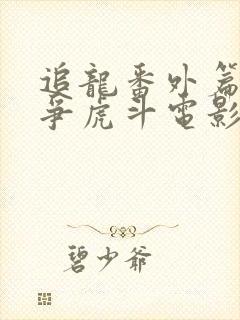 追龍番外篇
爭虎斗電影
碧少爷